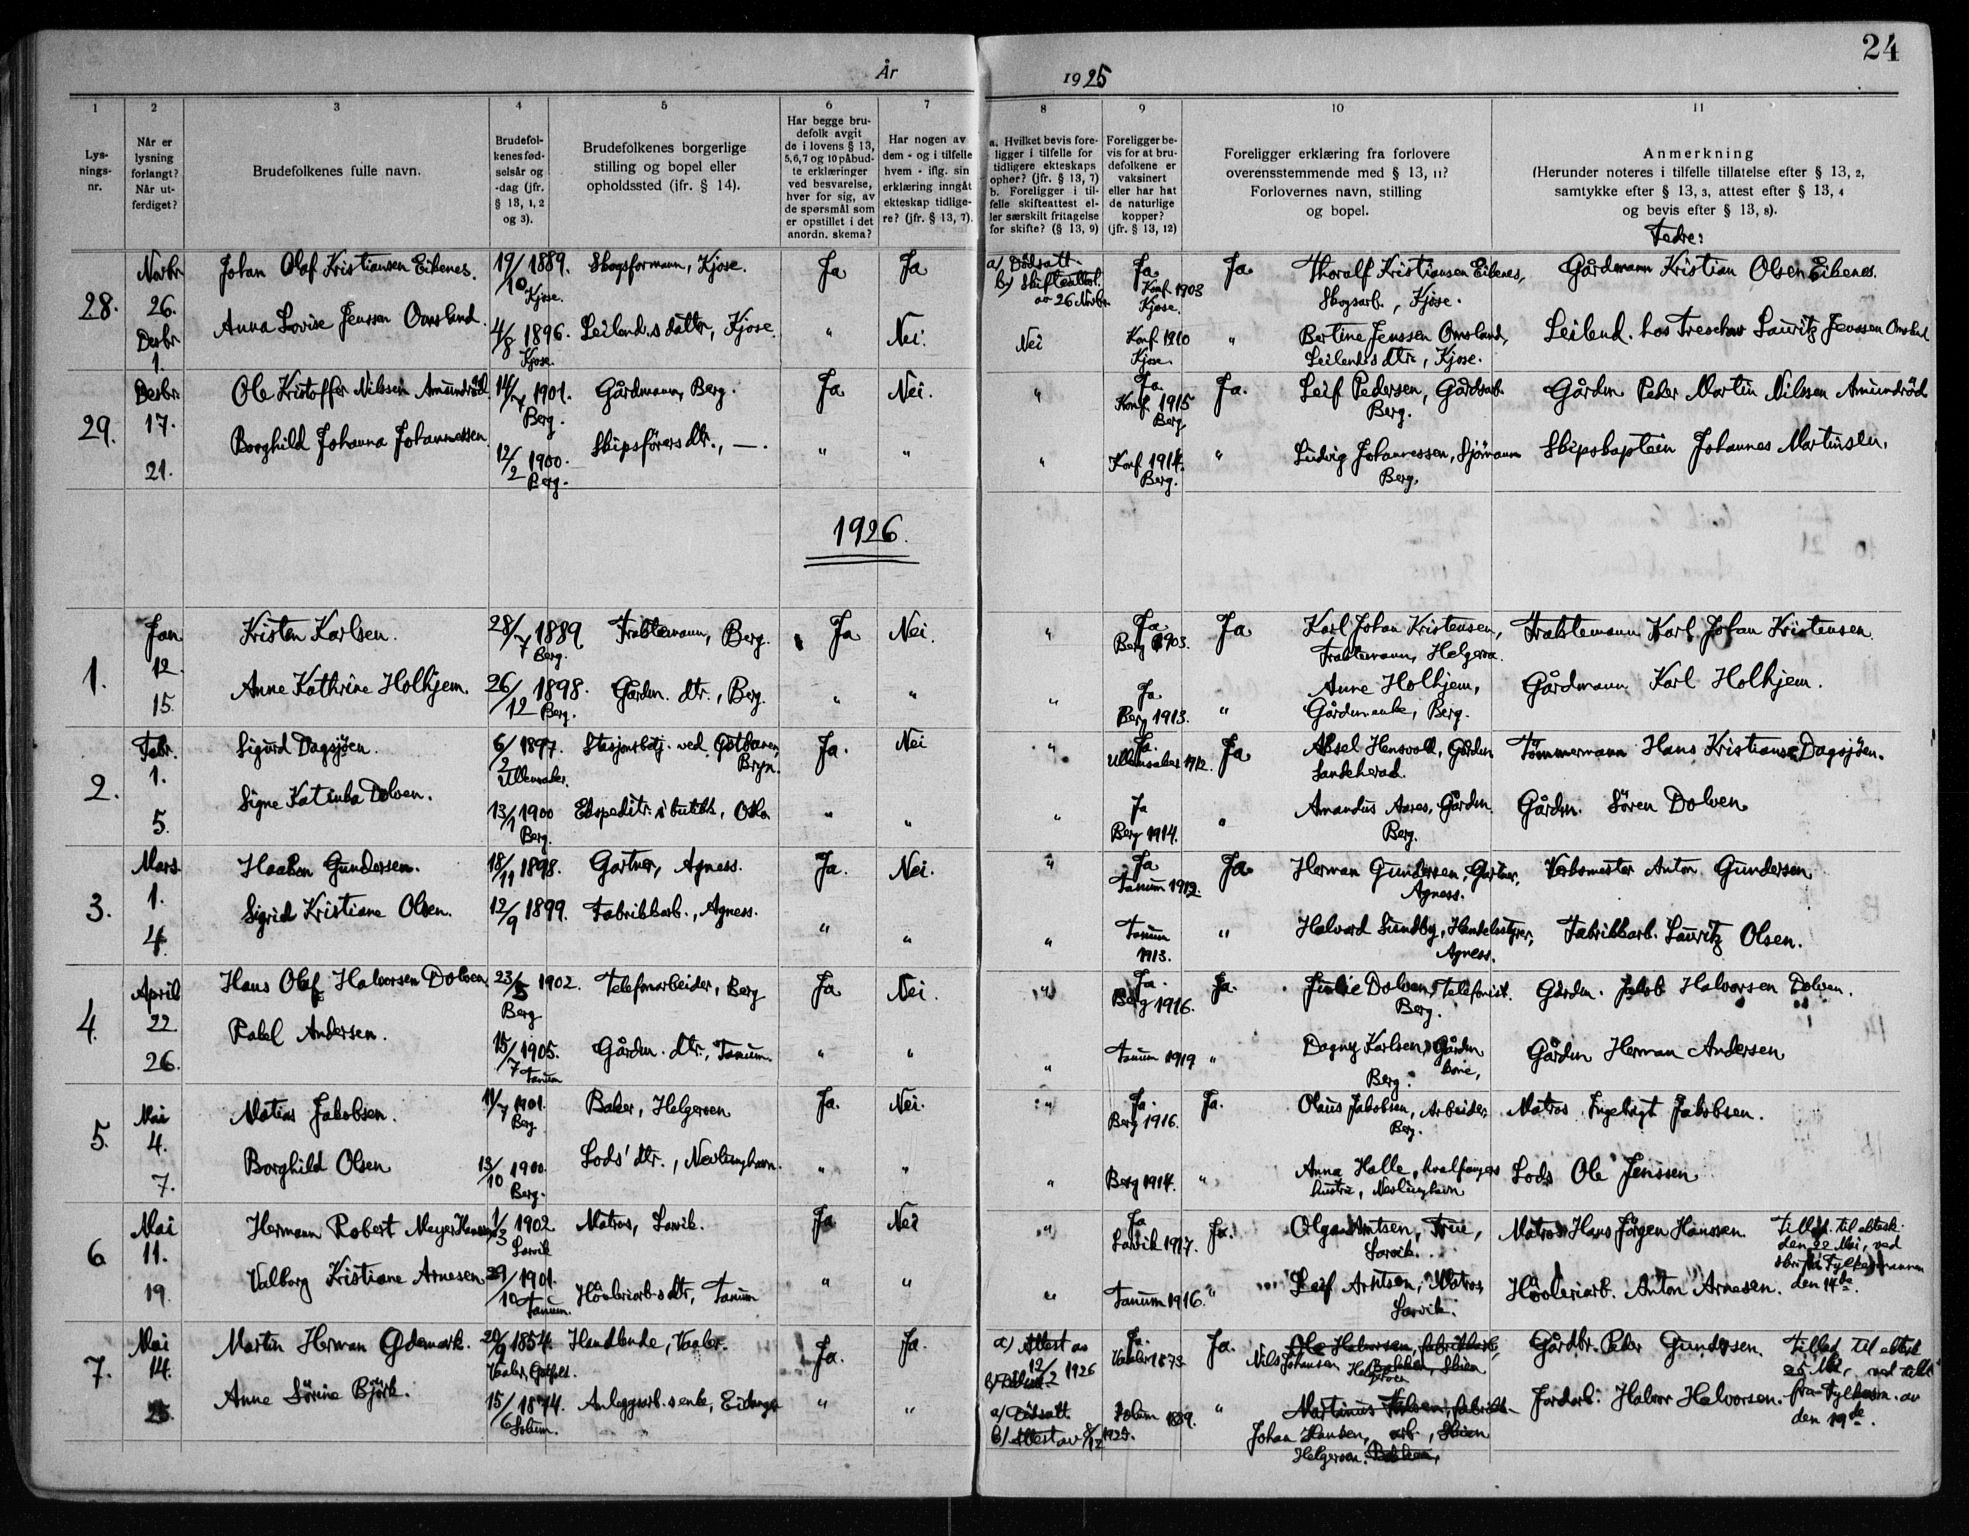 24
År 1925
1 2 3 4 5 6 7 8 9 10 11
Lys-
nings-
nr.
Når er
lysning
forlangt?
Når ut-
ferdiget?
Brudefolkenes fulle navn.
Brudefol-
kenes fød-
selsår og
-dag (jfr.
§ 13, 1, 2
og 3).
Brudefolkenes borgerlige
stilling og bopel eller
opholdssted (ifr. § 14).
Har begge bru-
defolk avgit
de i lovens § 13,
5,6,7 og 10 påbud-
te erklæringer
ved besvarelse,
hver for sig, av
de spørsmål som
er opstillet i det
anordn. skema?
Har nogen av
dem - og i tilfelle
hvem - iflg. sin
erklæring inngåt
ekteskap tidlige-
re? (jfr. § 13, 7).
a. Hvilket bevis fore-
ligger i tilfelle for
tidligere ekteskaps
ophør? (jfr. § 13, 7)
b. Foreligger i til-
felle skifteattest el-
ler særskilt fritagelse
for skifte? (§ 13, 9)
Foreligger be-
vis for at bru-
defolkene er
vaksinert
eller har hat
de naturlige
kopper?
(jfr. § 13, 12)
Foreligger erklæring fra forlovere
overensstemmende med § 13, 11?
Forlovernes navn, stilling
og bopel.
Anmerkning
(Herunder noteres i tilfelle tillatelse efter § 13, 2,
samtykke efter § 13, 3, attest efter § 13, 4
og bevis efter § 13, 8).
Fedre:
28.
Novbr.
26.
Desbr.
1.
Johan Olaf Kristiansen Eikenes.
19/10 1889.
Kjose.
Skogsformann, Kjose.
Ja
Ja
a) Dødsatt.
b) Skifteattest.
av 26 Novbr.
Ja
Konf. 1903
Kjose.
Ja
Thoralf Kristiansen Eikenes,
Skogsarb., Kjose.
Gårdmann Kristian Olsen Eikenes.
Anna Lovise Jenssen Omsland.
4/8 1896.
Kjose.
Leilend.s dattr, Kjose.
"
Nei.
Nei
Konf. 1910
Kjose.
"
Bertine Jenssen Omsland,
Leilend.s dtr, Kjose.
Leilend. hos Treschow Lauritz Jenssen Omsland
29.
Desbr.
17.
21.
Ole Kristoffer Nilssen Amundrød
1901.
Berg.
Gårdmann, Berg.
Ja
Nei.
"
Ja.
Konf. 1915
Berg
Ja.
Leif Pedersen, Gårdsarb.
Berg.
Gårdm Peder Martin Nilssen Amundrød
Borghild Johanna Johannessen
12/2 1900.
Berg.
Skipsførers dtr., —.
"
"
"
Konf. 1914.
Berg.
"
Ludvig Johannessen, Sjømann
Berg.
Skipskaptein Johannes Martinsen.
1926.
1.
Jan
12.
15.
Kristen Karlsen.
28/7 1889
Berg.
Fraktemann, Berg.
Ja
Nei.
"
Ja
Berg 1903.
Ja
Karl Johan Kristensen,
Fraktemann, Helgeroa.
Fraktemann Karl Johan Kristensen
Anne Kathrine Holhjem.
26/12 1898.
Berg.
Gårdm. dtr., Berg.
"
"
"
Ja
Berg 1913.
"
Anne Holhjem,
Gårdmenke, Berg.
Gårdmann Karl Holhjem.
2.
Febr.
1.
5.
Sigurd Dagsjøen.
6/2 1897.
Ullensaker.
Stasjonsbetj. ved Gjøtbanen,
Bryn.
Ja.
Nei
"
Ja.
Ullensaker 1912.
Ja
Aksel Hensvold, Gårdm
Sandeherad.
Tømmermann Hans Kristiansen Dagsjøen.
Signe Katinka Dolven.
13/1 1900
Berg.
Ekspeditr. i butikk, Oslo.
"
"
"
Ja
Berg 1914.
"
Amandus Aares, Gårdm.
Berg.
Gårdm. Søren Dolven
3.
Mars
1.
4.
Haakon Gundersen.
18/11 1898.
Gartner, Agness.
Ja.
Nei.
"
Ja
Tanum 1912.
Ja.
Herman Gundersen, Gartner,
Agness.
Verksmester Anton Gundersen
Sigrid Kristiane Olsen.
12/9 1899.
Fabrikkarb., Agness.
"
"
"
Tanum
1913.
"
Halvard Sundby, Handelsstyrer,
Agness.
Fabrikkarb. Lauritz Olsen.
4.
April
22.
26.
Hans Olaf Halvorsen Dolven
23/5 1902.
Berg
Telefonarbeider, Berg
Ja
Nei.
"
Ja.
Berg 1916.
Ja.
Julie Dolven, Telefonist.
Berg.
Gårdm. Jakob Halvorsen Dolven.
Rakel Andersen.
15/7 1905.
Tanum
Gårdm. dtr., Tanum.
"
"
"
Tanum 1919
"
Dagny Karlsen, Gårdm
kone,
Berg.
Gårdm Herman Andersen
5.
Mai
4.
7.
Matias Jakobsen.
11/7 1901.
Berg
Baker, Helgeroen
Ja.
Nei.
"
Ja.
Berg 1916.
Ja.
Olaus Jakobsen, Arbeider
Berg.
Matros Ingebrigt Jakobsen.
Borghild Olsen
13/10 1900.
Berg.
Lods' dtr., Nevlunghavn.
"
"
"
Berg 1914.
"
Anna Halle, hvalfangers
hustru, Nevlunghavn
Lods Ole Jenssen
6
Mai
11.
19.
Hermann Robert Meyer Hanssen
1/3 1902
Larvik
Matros, Larvik.
Ja
Nei
"
Ja
Larvik 1917.
Ja.
Olga Arntsen, Frue,
Larvik.
Matros Hans Jørgen Hanssen.
Tillat. til ektesk.
den 22 Mai, ved
skriv. fra Fylkesmannen
den 14de.
Valborg Kristiane Arnesen
29/10 1901.
Tanum.
Høvleriarb.s dtr, Tanum
"
"
"
Tanum 1916.
"
Leif Arntsen, Matros,
Larvik.
Høvleriarb. Anton Arnesen.
7.
Mai
14.
25.
Martin Herman Ødemark.
20/9 1854.
Vaaler,
Handlende, Vaaler.
Ja.
Ja.
a) Attest av
12/2 1926
Ja.
Vaaler 1873
Ja.
Ole Halvorsen, fabrikkarb.,
Nils Johansen
Gårdbr. Peder Gundersen.
Tillat. til ektesk
25 Mai, ved
fra Fylkesm. av
den 19de.
Anne Sørine Bjørk.
15/6 1874.
Solum.
Anleggsarb.s enke, Eidanger
"
"
a) Dødsatt.
b) Attest av 8/12 1925.
Solum 1889.
"
Martinus
Johan Hansen, arb., Skien
Helgeroen.
Jordarb. Halvor Halvorsen.